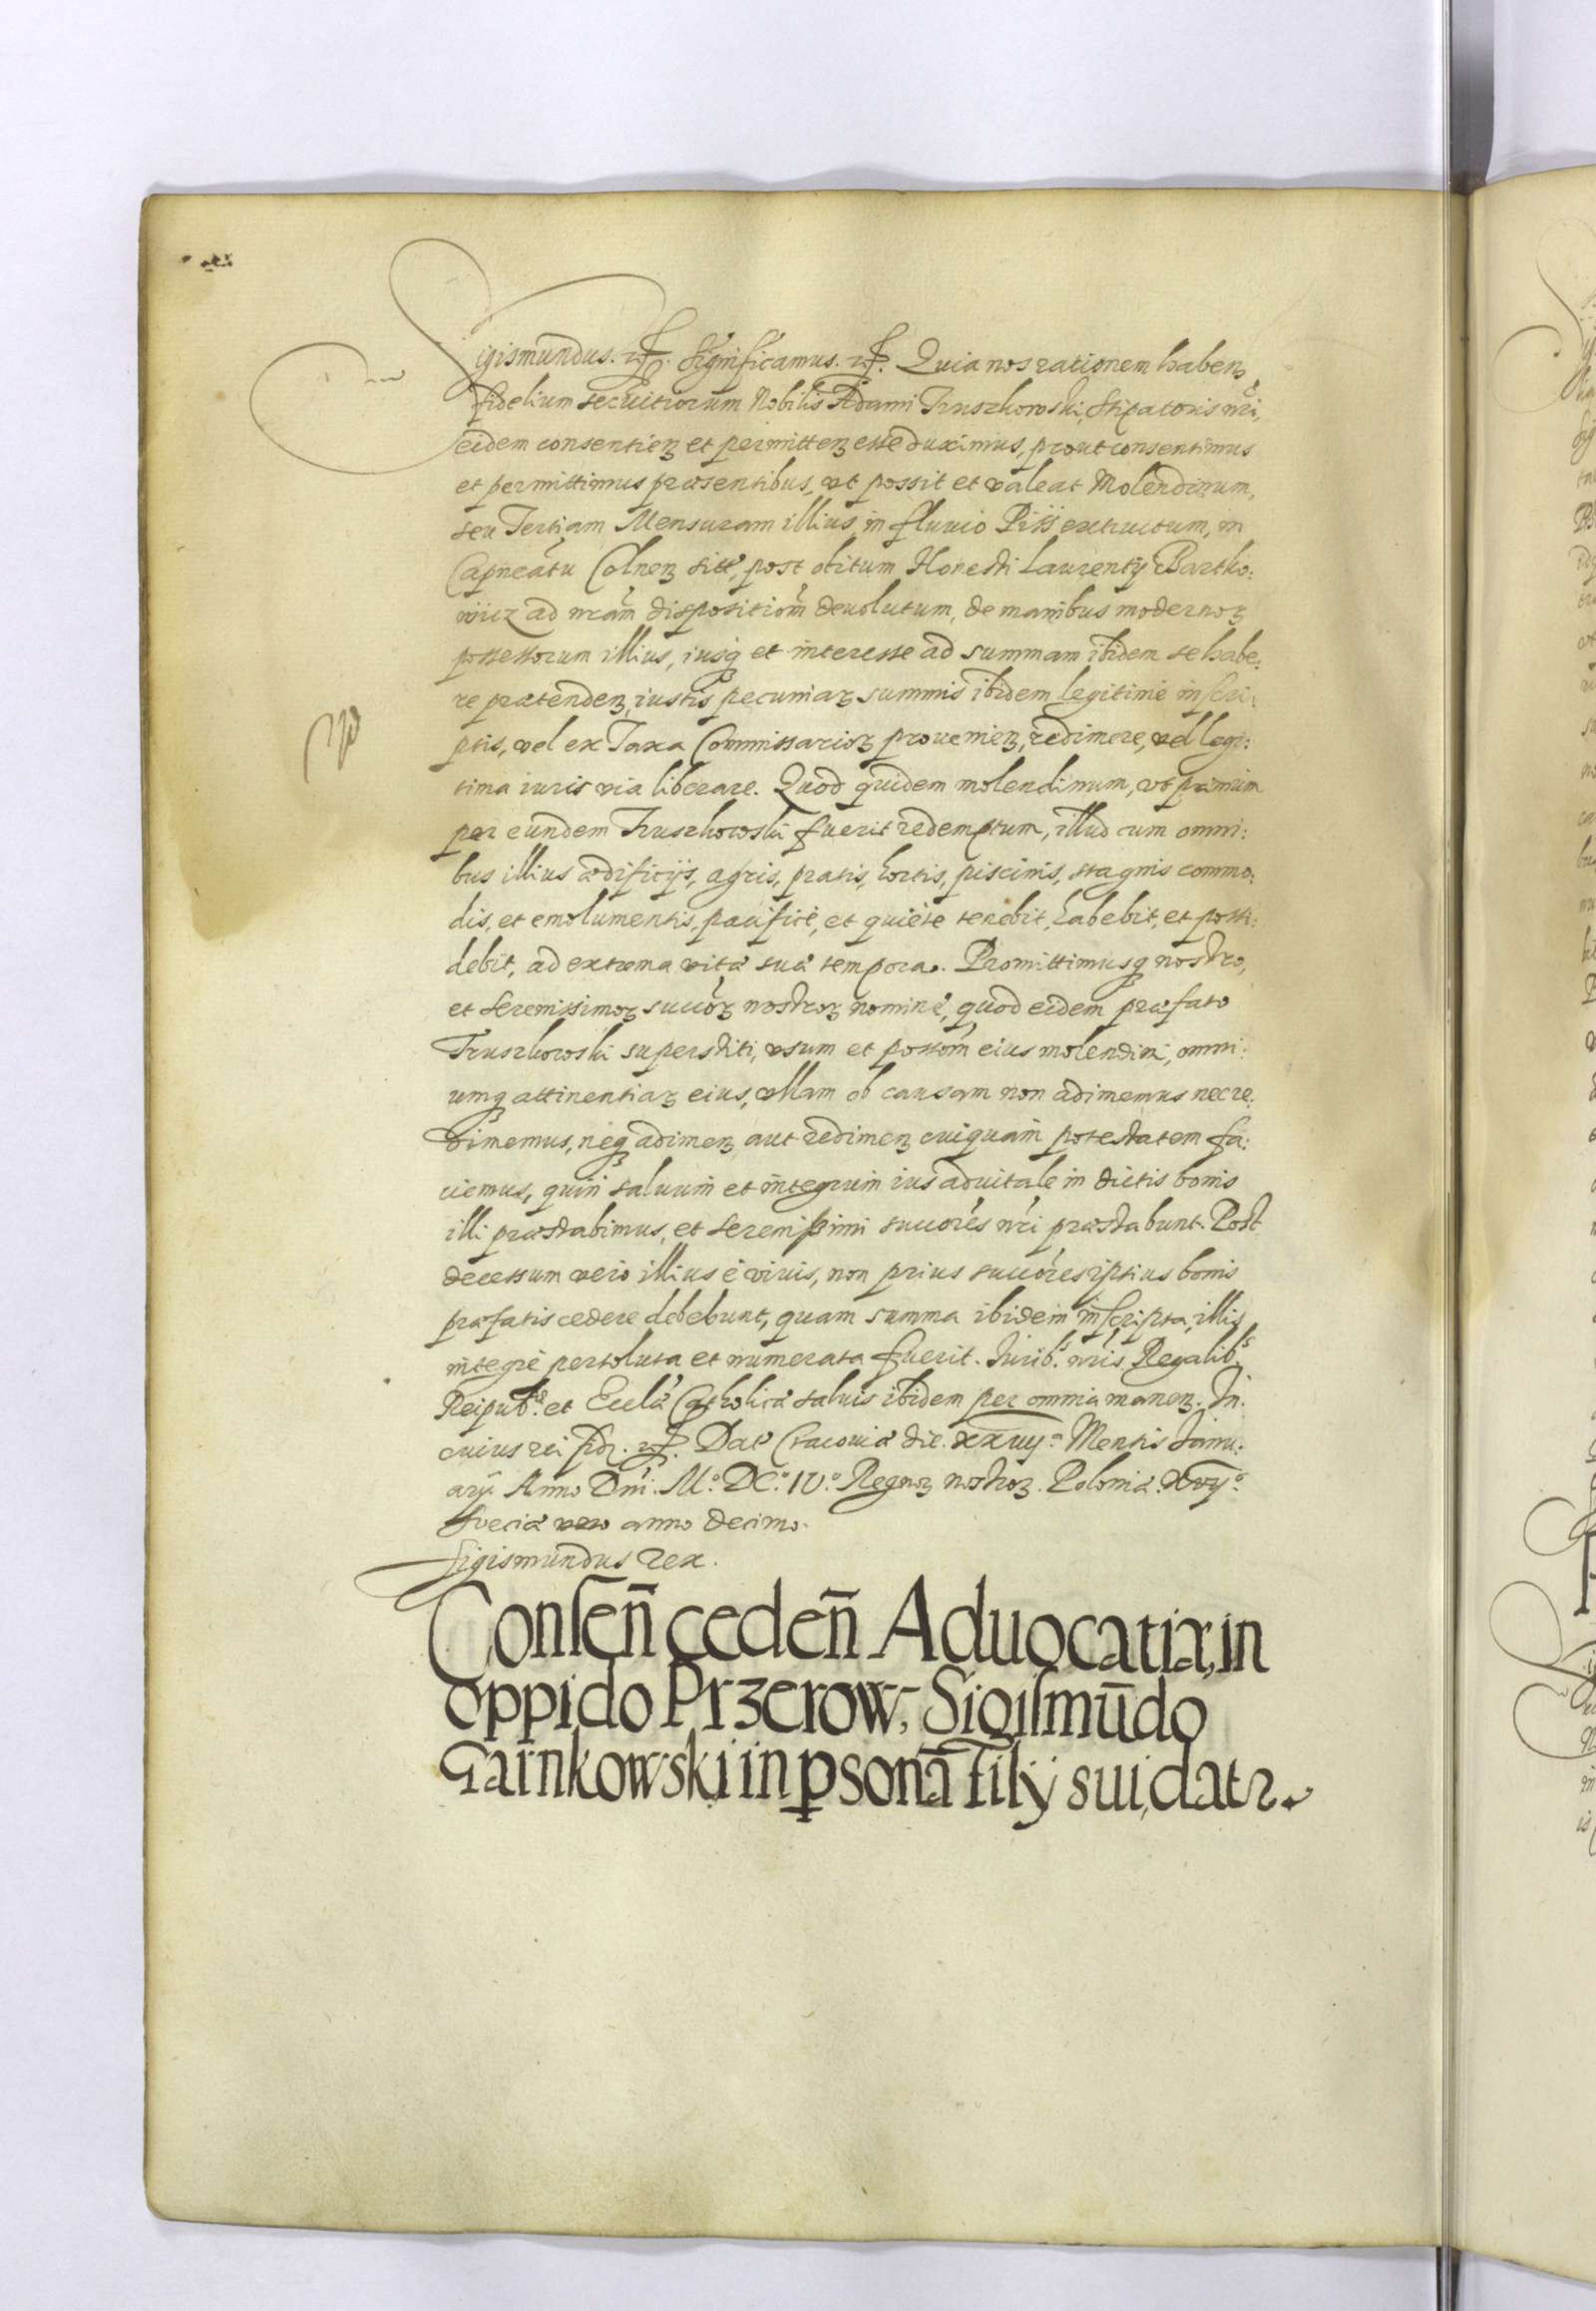 Sigismundus. etc. Significamus. etc. Quia nos rationem habenꝫ
fidelium seruitiorum Nobilis Adami Truszkowski, Stipatoris nr̃i,
eidem consentienꝫ et permittenꝫ esse duximus, prout consentimus
et permittimus præsentibus, vt possit et valeat Molendinum,
seu Tertiam Mensuram illius in fluuio Piss extructum, in
Capneãtu Colnenꝫ sitt, post obitum Honesti Laurentij Bartko:
wicz ad nr̃am dispositiom̃ deuolutum, de manibus modernoꝝ
possessorum illius, iusqꝫ et interesse ad summam ibidem se habe:
re prætendenꝫ, iustis pecuniaꝝ summis ibidem legitime inscri:
ptis, vel ex Taxa Commissarioꝝ prouenienꝫ, redimere, vel legi:
tima iuris via liberare. Quod quidem molendinum, vt primum
per eundem Truszkowski fuerit redemptum, illud cum omni:
bus illius ædificijs, agris, pratis, hortis, piscinis, stagnis commo:
dis, et emolumentis, pacificè, et quiète tenebit, habebit, et possi:
debit, ad extrema vitæ suæ tempora. Promittimusqꝫ nostro,
et Serenissimoꝝ succoꝝ̃ nostroꝝ nomine, quod eidem præfato
Truszkowski superstiti, vsum et possom̃ eius molendini, omni:
umqꝫ attinentiaꝝ eius, vllam ob causam non adimemus nec re:
dimemus, neqꝫ adimenꝫ aut redimenꝫ cuiquam potestatem fa:
ciemus, quin saluum et integrum ius aduitale in dictis bonis
illi præstabimus, et Serenissimi succores nr̃i præstabunt. Post
decessum vero illius è viuis, non prius succores ipsius bonis
præfatis cedere debebunt, quam summa ibidem inscripta, illis
integrè persoluta et numerata fuerit. Iurib⁹. nr̃is Regalib⁹.
Reipub: et Ecclæ Catholicæ saluis ibidem per omnia manenꝫ. In
cuius rei fid. etc. Dat Cracouiæ die. xxuij.ᵃ Mensis Janu:
arij. Anno Dn̄i. M.° DC.° IV.° Regnoꝝ nostroꝝ. Poloniæ. Xvij.°
Sueciæ vero anno decimo.
Sigismundus Rex.
Consen̄ ceden̄ Aduocatiæ, in
oppido Przerow, Sigismūdo
Garnkowski in ꝑsonā Filÿ sui, datr.